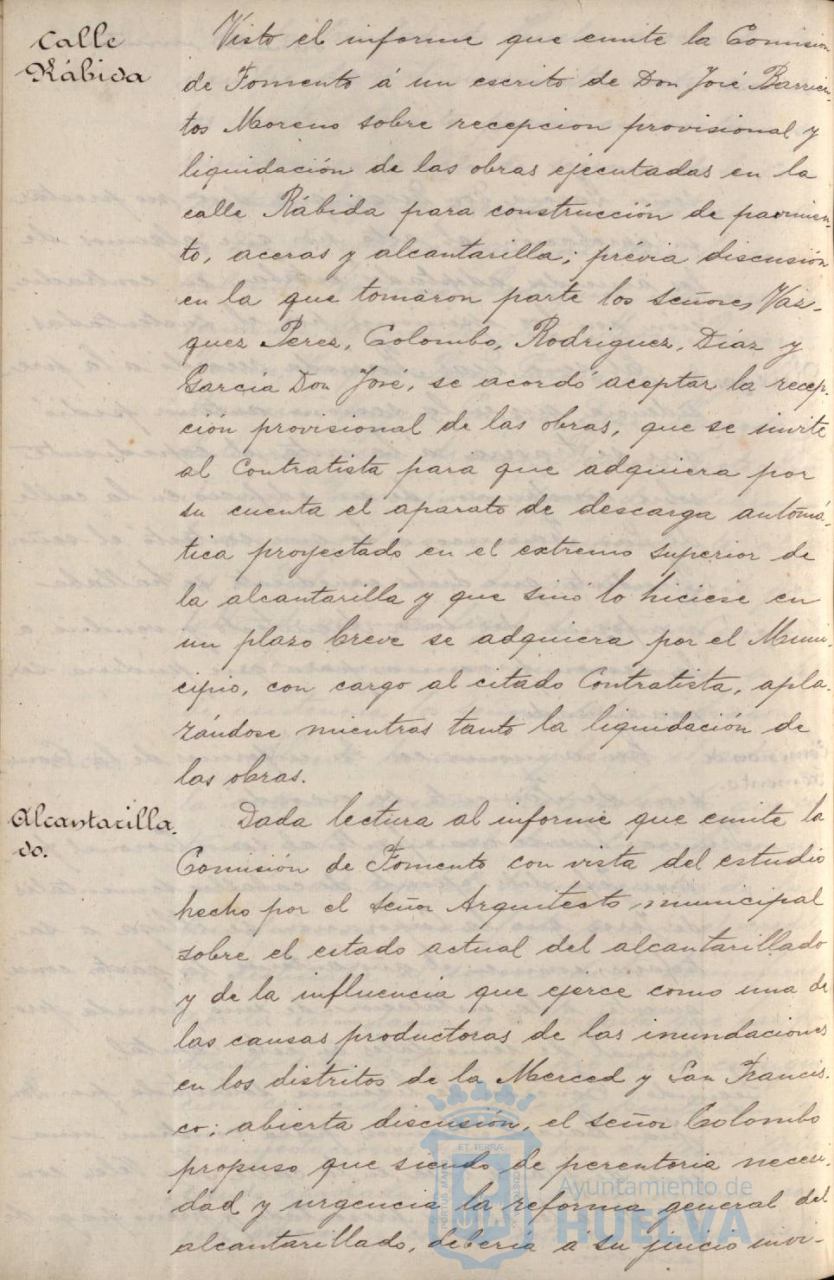 Calle
Rábida
Visto el informe que emite la Comisión
de Fomento á un escrito de Don José Barrien-
tos Moreno sobre recepcion provisional y
liquidación de las obras ejecutadas en la
calle Rábida para construcción de pavimen-
to, aceras y alcantarilla; prévia discusión
en la que tomaron parte los señores Váz-
quez Perez, Colombo, Rodriguez, Díaz y
García Don José, se acordó aceptar la recep-
ción provisional de las obras, que se invite
al Contratista para que adquiera por
su cuenta el aparato de descarga automá-
tica proyectado en el extremo superior de
la alcantarilla y que sinó lo hiciese en
un plazo breve se adquiera por el Muni-
cipio, con cargo al citado Contratista, apla-
zándose mientras tanto la liquidación de
las obras.
Alcantarilla-
do.
Dada lectura al informe que emite la
Comisión de Fomento con vista del estudio
hecho por el señor Arquitecto municipal
sobre el estado actual del alcantarillado
y de la influencia que ejerce como una de
las causas productoras de las inundaciones
en los distritos de la Merced y San Francis-
co; abierta discusión, el señor Colombo
propuso que siendo de perentoria necesi-
dad y urgencia la reforma general del
alcantarillado, debería a su juicio invi-
Ayuntamiento de
HUELVA